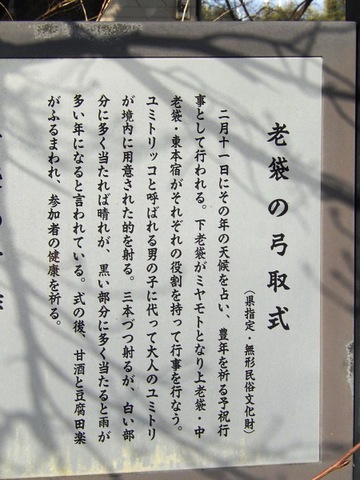 老袋の弓取式
（県指定・無形民俗文化財）
二月十一日にその年の天候を占い、豊年を祈る予祝行
事として行われる。下老袋がミヤモトとなり上老袋・中
老袋・東本宿がそれぞれの役割を持って行事を行なう。
ユミトリッコと呼ばれる男の子に代って大人のユミトリ
が境内に用意された的を射る。三本づつ射るが、白い部
分に多く当たれば晴れが、黒い部分に多く当たると雨が
多い年になると言われている。式の後、甘酒と豆腐田楽
がふるまわれ、参加者の健康を祈る。